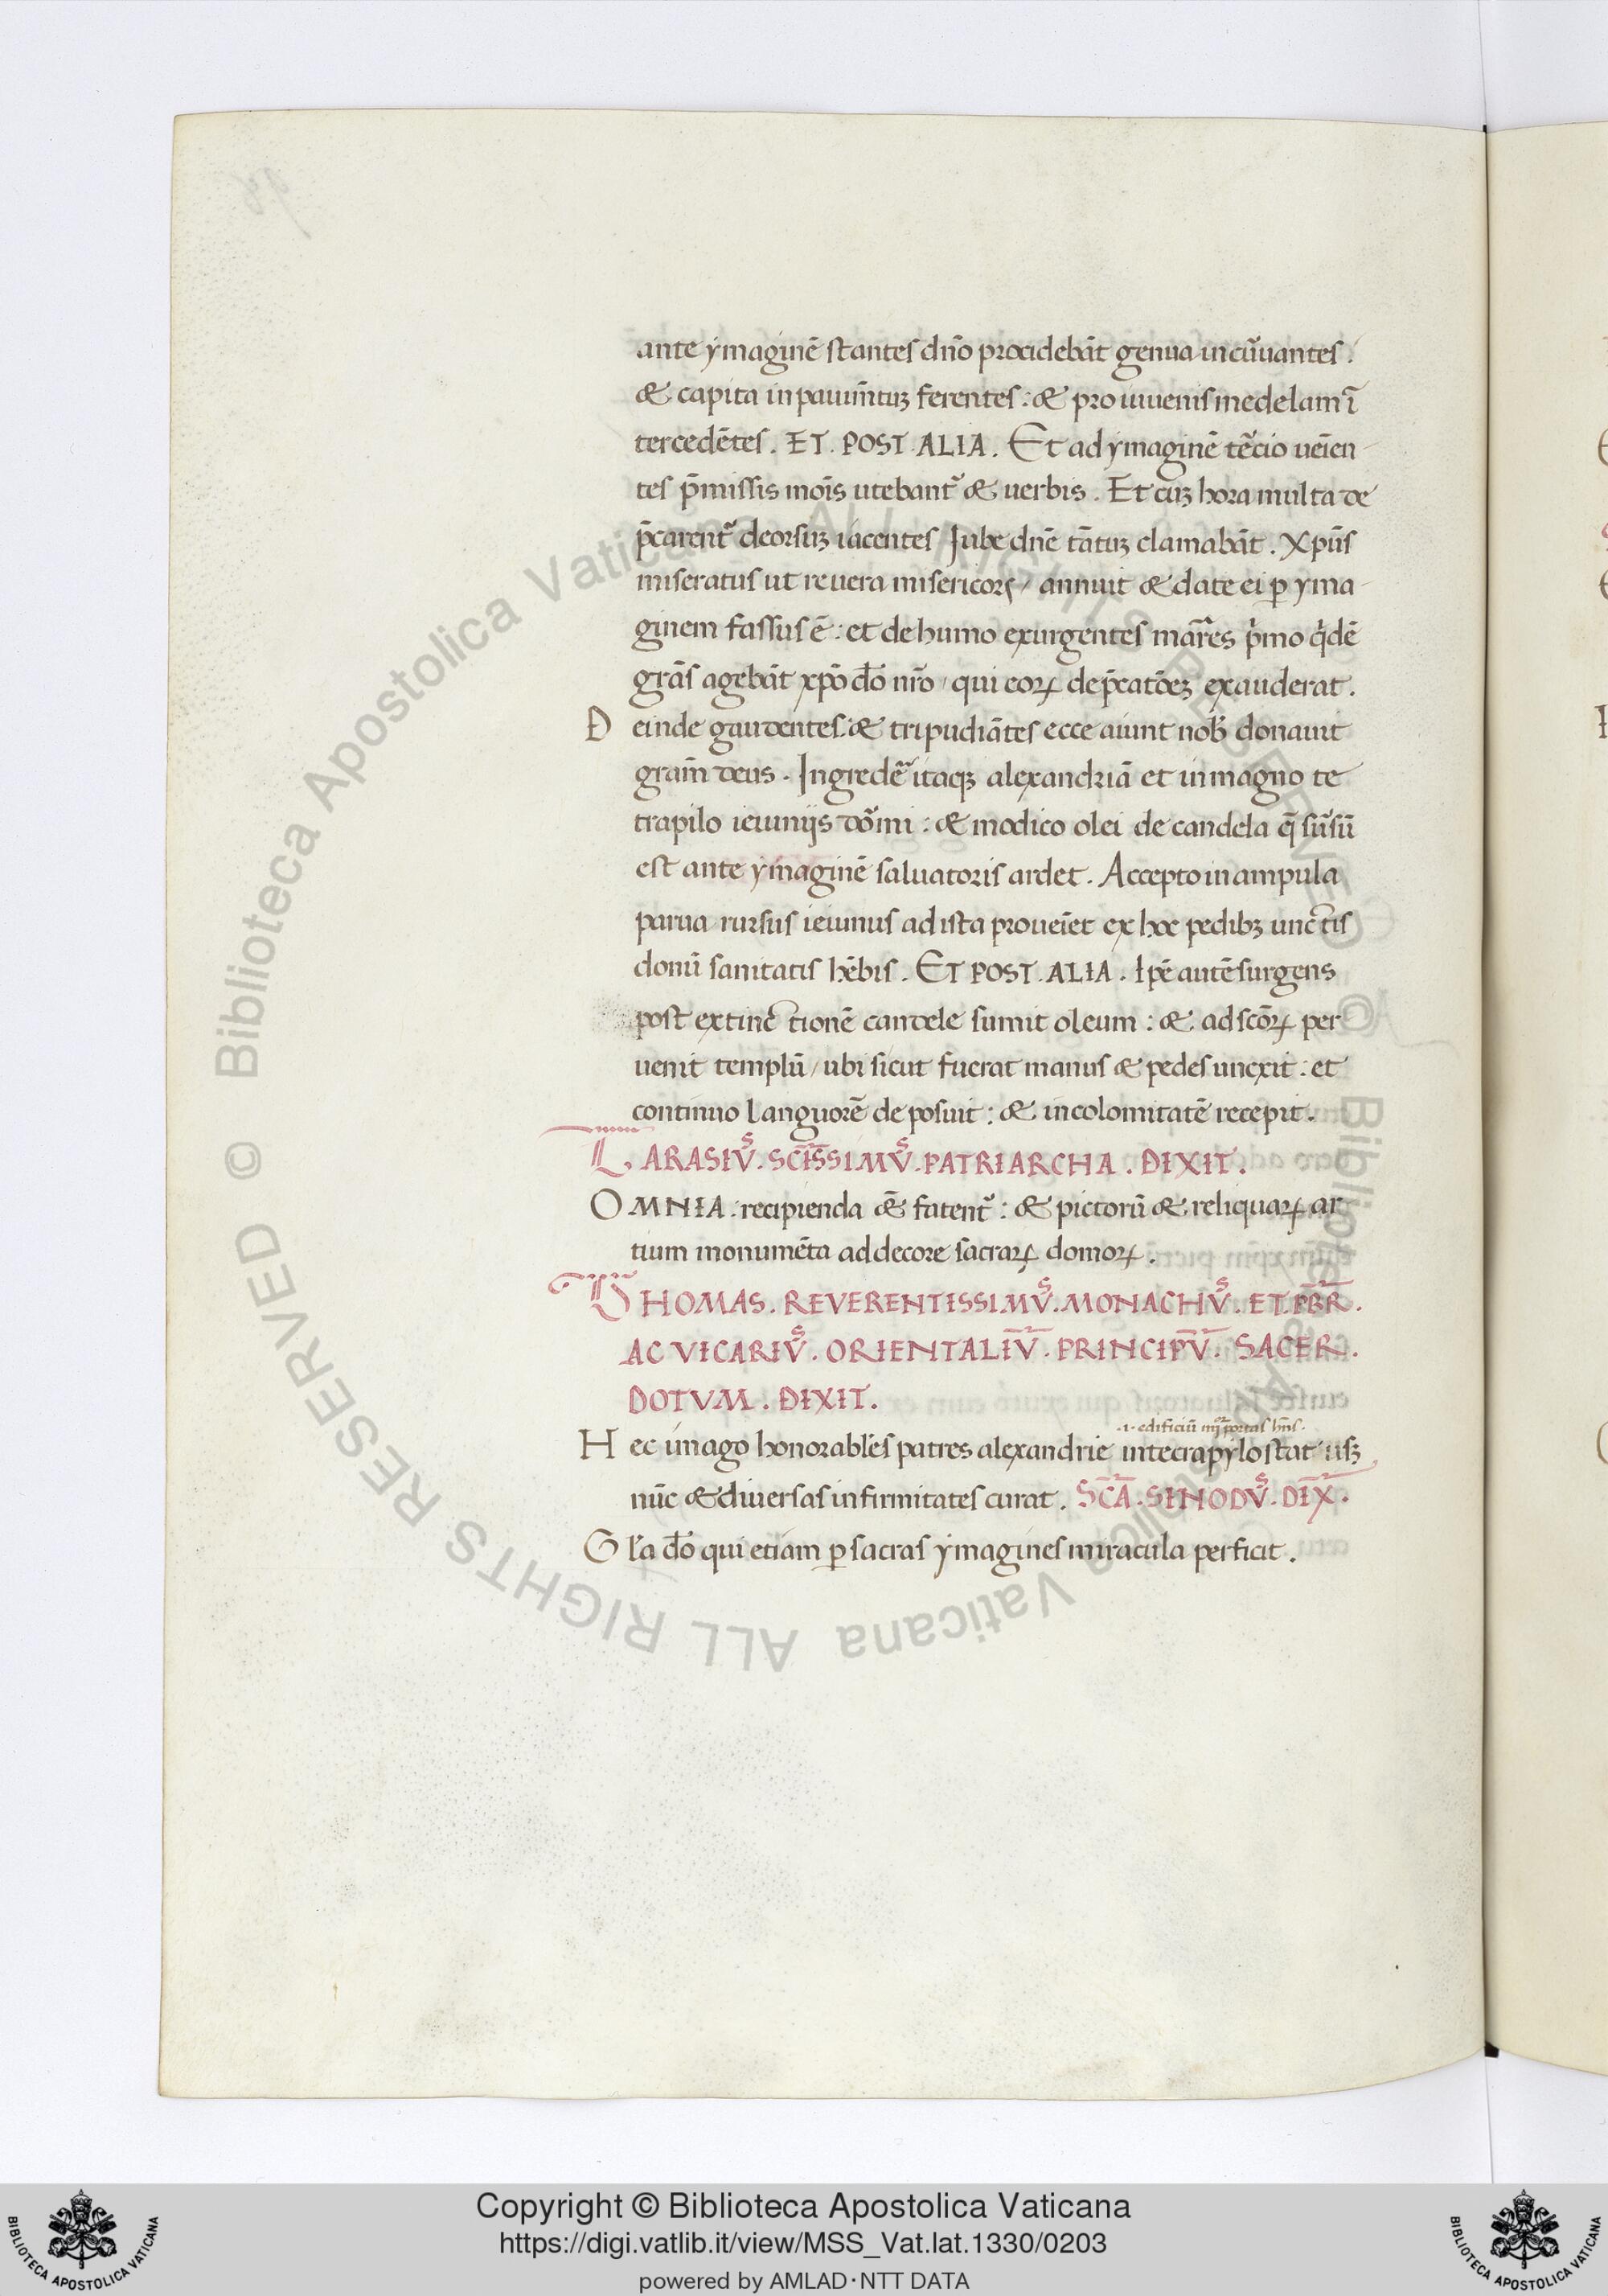 ante ymaginē stantes dn̄o procidebāt genua incuruantes.
& capita in pauim̄tuꝫ ferentes: & pro iuuenis medelam ī
tercedētes. ET. POST. ALIA. Et ad ymaginē tēcio ueīen
tes p̄missis moīs utebant᷑ & uerbis. Et cuꝫ hora multa de
p̄carent᷑ deorsuꝫ iacentes Iube dn̄e tātuꝫ clamabāt. Xpūs
miseratus ut reuera misericors / annuit & date ei ꝑ yma
ginem fassus ē: et de humo exurgentes mar̄es pͥmo qͥdē
grās agebāt xp̄o dō nr̄o / qui eoꝝ dep̄catōeꝫ exauderat.
Deinde gaudentes: & tripudiātes ecce aiunt nob̄ donauit
gram̄ deus. Ingredē᷑ itaqꝫ alexandriā et in magno te
trapilo ieiunijs dōmi: & modico olei de candela q̄ sūsū
est ante ymaginē saluatoris ardet. Accepto in ampula
parua rursus ieiunus ad ista proueīet ex hoc pedibꝫ unctis
donū sanitatis hēbis. ET POST. ALIA. Ipē autē surgens
post extinctionē candele sumit oleum: & ad scōꝝ per
uenit templū / ubi sicut fuerat manus & pedes unxit: et
continuo languorē deposuit: & incolomitatē recepit.
TARASIVˢ. SCĪSSIMVˢ. PATRIARCHA. DIXIT.
OMNIA. recipienda eē̄ fatent᷑: & pictorū & reliquaꝝ ar
tium monumēta ad decore sacraꝝ domoꝝ.
THOMAS. REVERENTISSIMVˢ. MONACHVˢ. ET. PB̄R̄.
AC VICARIVˢ. ORIENTALIV̄. PRINCIPV̄. SACER.
DOTVM. DIXIT.
.i. edificiū iiijᵒʳ portas hn̄s.
Hec imago honorabl̄es patres alexandrie in tetrapylo stat usqꝫ
nūc & diuersas infirmitates curat. SC̄Ā. SINODVˢ. DIX̄.
Gl̄a dō qui etiam ꝑ sacras ymagines miracula perficit.
© Biblioteca Apostolica Vaticana ALL RIGHTS RESERVED © Biblioteca Apostolica Vaticana ALL RIGHTS RESERVED
Copyright © Biblioteca Apostolica Vaticana
https://digi.vatlib.it/view/MSS_Vat.lat.1330/0203
powered by AMLAD·NTT DATA
BIBLIOTECA APOSTOLICA VATICANA
BIBLIOTECA APOSTOLICA VATICANA